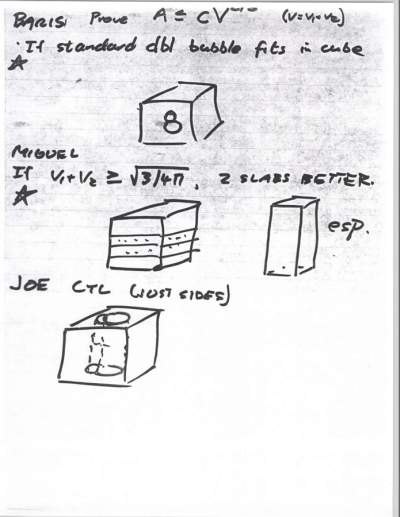 BARISI Prove A ≤ CV (V=V1+V2)
· If standard dbl bubble fits in cube
8
MIGUEL
If V1+V2 ≥ √3/4π, 2 SLABS BETTER.
esp.
JOE CTL (JUST SIDES)